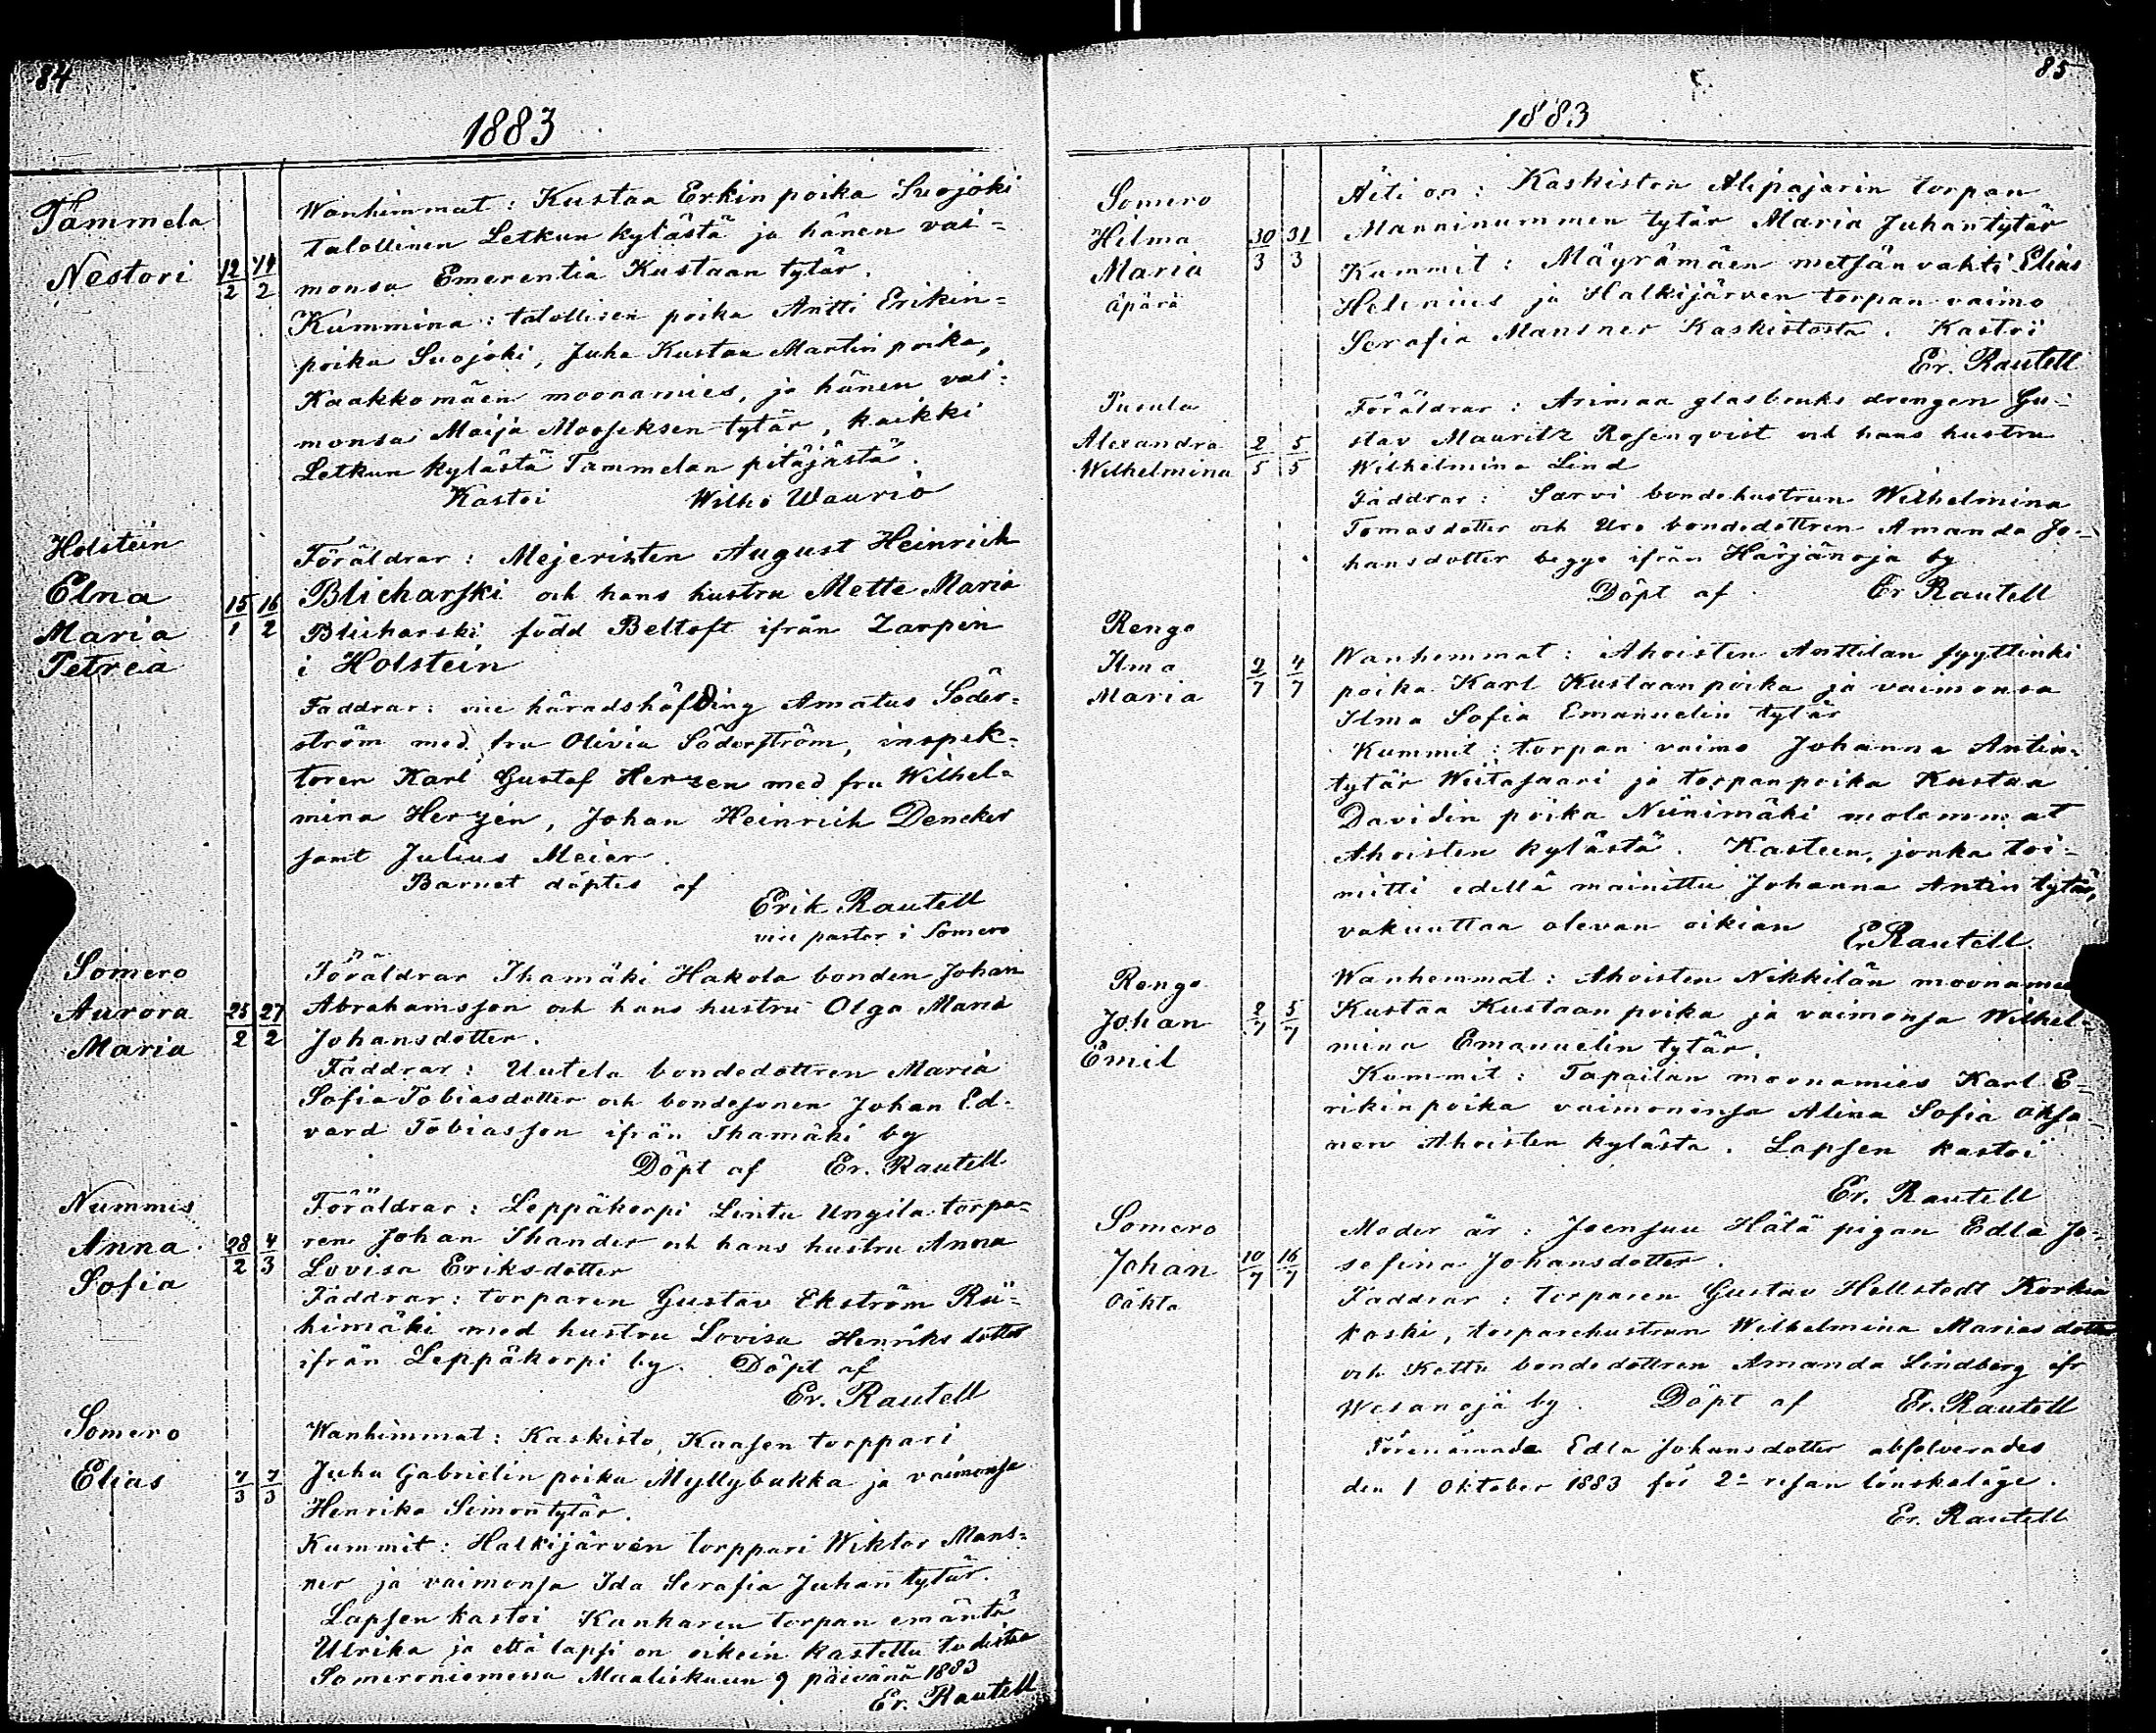 84
1883
Tammela
Nestori 12/2 14/2
Wanhimmat: Kustaa Erkin poika Suojoki
talollinen Letkun kylästä ja hänen vai=
monsa Emerentia Kustaan tytär.
Kummina: talollisen poika Antti Erikin=
poika Suojoki, Juha Kustaa Martin poika,
Kaakkomäen moonamies, ja hänen vai=
monsa Maija Mooseksen tytär, kaikki
Letkun kylästä Tammelan pitäjästä.
Kastoi Wilho Waurio
Holstein
Elna 15/1 16/2
Maria
Petrea
Föräldrar: Mejeristen August Heinrich
Blicharski och hans hustru Mette Maria
Blicharski född Beltoft ifrån Zarpin
i Holstein
Faddrar: vice häradshöfding Amatus Söder=
ström med fru Olivia Söderström, inspek=
toren Karl Gustaf Herzen med fru Wilhel=
mina Herzen, Johan Heinrich Dencker
samt Julius Meier.
Barnet döptes af
Erik Rautell
vice pastor i Somero
Somero
Aurora 25/2 27/2
Maria
Föräldrar Ihamäki Hakola bonden Johan
Abrahamsson och hans hustru Olga Maria
Johansdotter.
Faddrar: Uutela bondedottren Maria
Sofia Tobiasdotter och bondesonen Johan Ed=
vard Tobiasson ifrån Ihamäki by
Döpt af Er. Rautell
Nummis
Anna 28/2 4/3
Sofia
Föräldrar: Leppäkorpi Lintu Ungila torpa=
ren Johan Thander och hans hustru Anna
Lovisa Eriksdotter
Faddrar: torparen Gustav Ekström Rii=
himäki med hustru Lovisa Henriks dotter
ifrån Leppäkorpi by. Döpt af
Er. Rautell
Somero
Elias 7/3 7/3
Wanhimmat: Kaskisto, Kaasen torppari
Juha Gabrielin poika Myllybakka ja vaimonsa
Henrika Simontytär.
Kummit: Halkijärven torppari Wiktor Mans=
ner ja vaimonsa Ida Serafia Juhan tytär.
Lapsen kastoi Kanharen torpan emäntä
Ulrika ja että lapsi on oikein kastettu todistaa
Someroniemessa Maaliskuun 9 päivänä 1883
Er. Rautell
85
1883
Somero
Hilma 30/3 31/3
Maria
äpärä
Äiti on: Kaskiston Alipajarin torpan
Manninummen tytär Maria Juhantytär
Kummit: Mäyrämäen metsän vahti Elias
Helenius ja Halkijärven torpan vaimo
Serafia Mansner Kaskistosta. Kastoi
Er. Rautell
Pusula
Alexandra 2/5 5/5
Wilhelmina
Föräldrar: Arimaa glasbruks drengen Gu=
stav Mauritz Rosenqvist och hans hustru
Wilhelmina Lind
Faddrar: Sarvi bondehustrun Wilhelmina
Tomasdotter och Uro bondedottren Amanda Jo=
hansdotter begge ifrån Härjänoja by
Döpt af Er Rautell
Rengo
Ilma 2/7 4/7
Maria
Wanhemmat: Ahoisten Anttilan syyttinki
poika Karl Kustaanpoika ja vaimonsa
Ilma Sofia Emanuelin tytär
Kummit: torpan vaimo Johanna Antin=
tytär Wiitasaari ja torpanpoika Kustaa
Davidin poika Niinimäki molemmat
Ahoisten kylästä. Kasteen, jonka toi=
mitti edellä mainittu Johanna Antin tytär,
vakuuttaa olevan oikian Er. Rautell.
Rengo
Johan 2/7 5/7
Emil
Wanhemmat: Ahoisten Nikkilän moonamies
Kustaa Kustaan poika ja vaimonsa Wilhel=
mina Emanuelin tytär.
Kummit: Tapailan moonamies Karl E=
rikinpoika vaimoninsa Alina Sofia Oksa
nen Ahoisten kylästa. Lapsen kastoi
Er. Rautell
Somero
Johan 10/7 16/7
oäkta
Moder är: Joensuu Hätä pigan Edla Jo=
sefina Johansdotter.
Faddrar: torparen Gustav Hellstedt Korkia
koski, torparehustrun Wilhelmina Mariasdotter
och Kettu bondedottren Amanda Lindberg ifr
Wesanoja by. Döpt af Er. Rautell
Förenämnde Edla Johansdotter absolverades
den 1 Oktober 1883 för 2a resan lönskaläge.
Er. Rautell